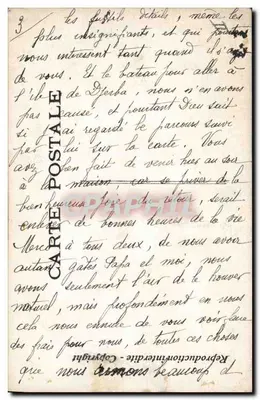 3
les futils détails, même les
plus insignifiants, et qui pourtant
nous intéressent tant quand il s'agit
de vous. Et le bateau pour aller à
l'île de Djerba, nous n'en avons
pas causé, et pourtant Dieu sait
si j'ai regardé le parcours suivi
par lui sur la carte. Vous
avez bien fait de venir hier au soir
à la maison car se priver de la
bienheureuse
de bonnes heures de la vie
Merci à tous deux, de nous avoir
autant gâtés Papa et moi, nous
avons seulement l'air de le trouver
naturel, mais profondément en nous
cela nous ennuie de vous voir faire
des frais pour nous, de toutes ces choses
que nous aimons beaucoup à
CARTE POSTALE
Reproduction interdite - Copyright